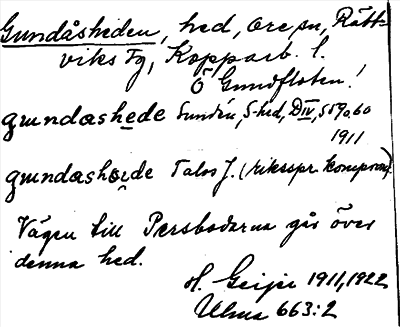 Gundåsheden, hed, Ore sn, Rätt-
viks tg, Kopparb. l.
Ö Gundfloten!
gundashede Sundén, S-hed, DIV, S 59 o. 60
1911
gundashede Talas J. (riksspr. kompron).
Vägen till Persbodarna går över
denna hed.
H. Geijer 1911, 1922
Ulma 663:2